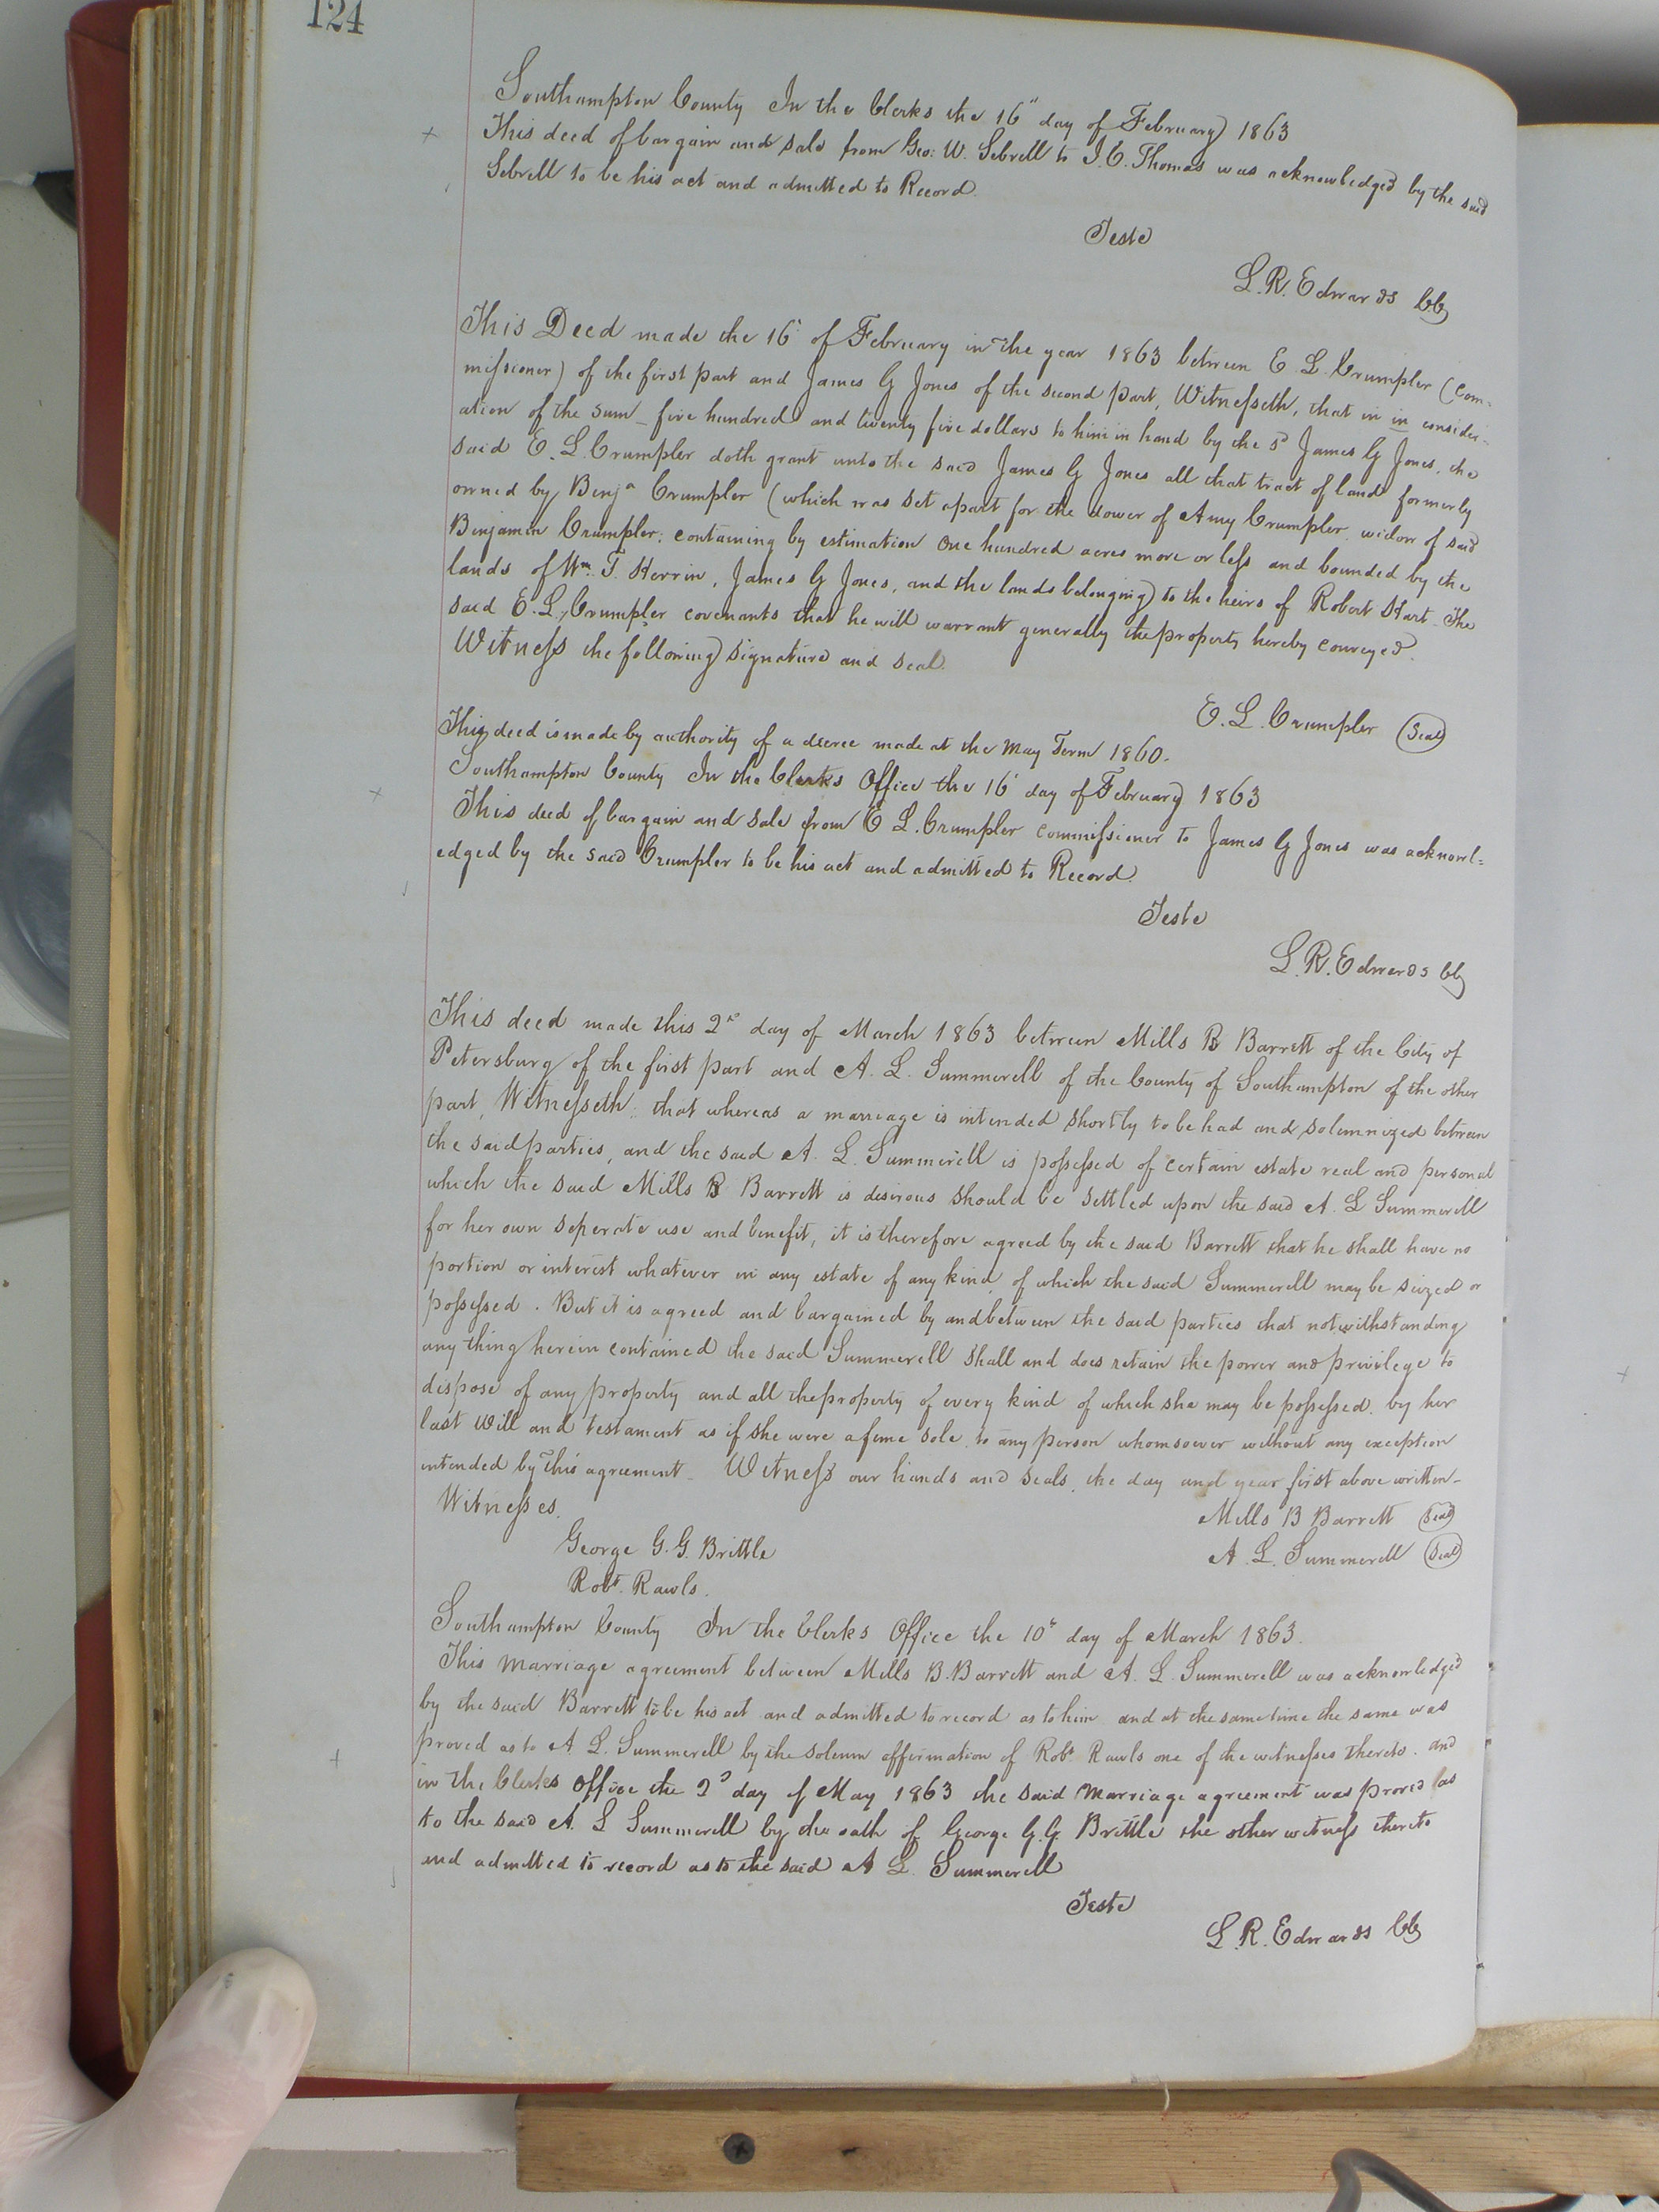 124
Southampton County In the Clerks the 16" day of February 1863
This deed of bargain and sale from Geo: W. Sebrell to J. C. Thomas was acknowledged by the said
Sebrell to be his act and admitted to Record.
Teste
L. R. Edwards CC
This Deed made the 16 of February in the year 1863 between E. L. Crumpler (Com=
missioner) of the first part and James G Jones of the second part, Witnesseth, that in in consider=
ation of the sum five hundred and twenty five dollars to him in hand by the sd James G Jones, the
said E. L. Crumpler doth grant unto the said James G Jones all that tract of land formerly
owned by Benja Crumpler (which was set apart for the dower of Amy Crumpler widow of said
Benjamin Crumpler; containing by estimation One hundred acres more or less and bounded by the
lands of Wm. T. Herrin, James G Jones, and the lands belonging to the heirs of Robert Hart. The
said E. L. Crumpler covenants that he will warrant generally the property hereby conveyed.
Witness the following signature and seal.
E. L. Crumpler (Seal)
This deed is made by authority of a decree made at the May Term 1860.
Southampton County In the Clerks Office the 16 day of February 1863
This deed of bargain and sale from E L. Crumpler commissioner to James G Jones was acknowl=
edged by the said Crumpler to be his act and admitted to Record.
Teste
L. R. Edwards CC
This deed made this 2d day of March 1863 between Mills B Barrett of the City of
Petersburg of the first part and A. L. Summerell of the County of Southampton of the other
part, Witnesseth: that whereas a marriage is intended shortly to be had and solemnized between
the said parties, and the said A. L. Summerell is possessed of certain estate real and personal
which the said Mills B Barrett is desirous should be settled upon the said A. L Summerell
for her own seperate use and benefit, it is therefore agreed by the said Barrett that he shall have no
portion or interest whatever in any estate of any kind, of which the said Summerell may be seized or
possessed. But it is agreed and bargained by and between the said parties that notwithstanding
any thing herein contained the said Summerell shall and does retain the power and privilege to
dispose of any property and all the property of every kind of which she may be possessed, by her
last Will and testament as if she were a feme sole, to any person whomsoever without any exception
intended by this agreement. Witness our hands and seals, the day and year first above written.
Witnesses.
Mills B Barrett (Seal)
George G. G. Brittle
A. L. Summerell (Seal)
Robt. Rawls.
Southampton County In the Clerks Office the 10th day of March 1863.
This marriage agreement between Mills B. Barrett and A. L. Summerell was acknowledged
by the said Barrett to be his act and admitted to record as to him and at the same time the same was
proved as to A. L. Summerell by the solemn affirmation of Robt. Rawls one of the witnesses thereto. and
in the Clerks Office the 2d day of May 1863 the said marriage agreement was proved as
to the said A. L Summerell by the oath of George G. G. Brittle the other witness thereto
and admitted to record as to the said A L. Summerell
Teste
L. R. Edwards CC